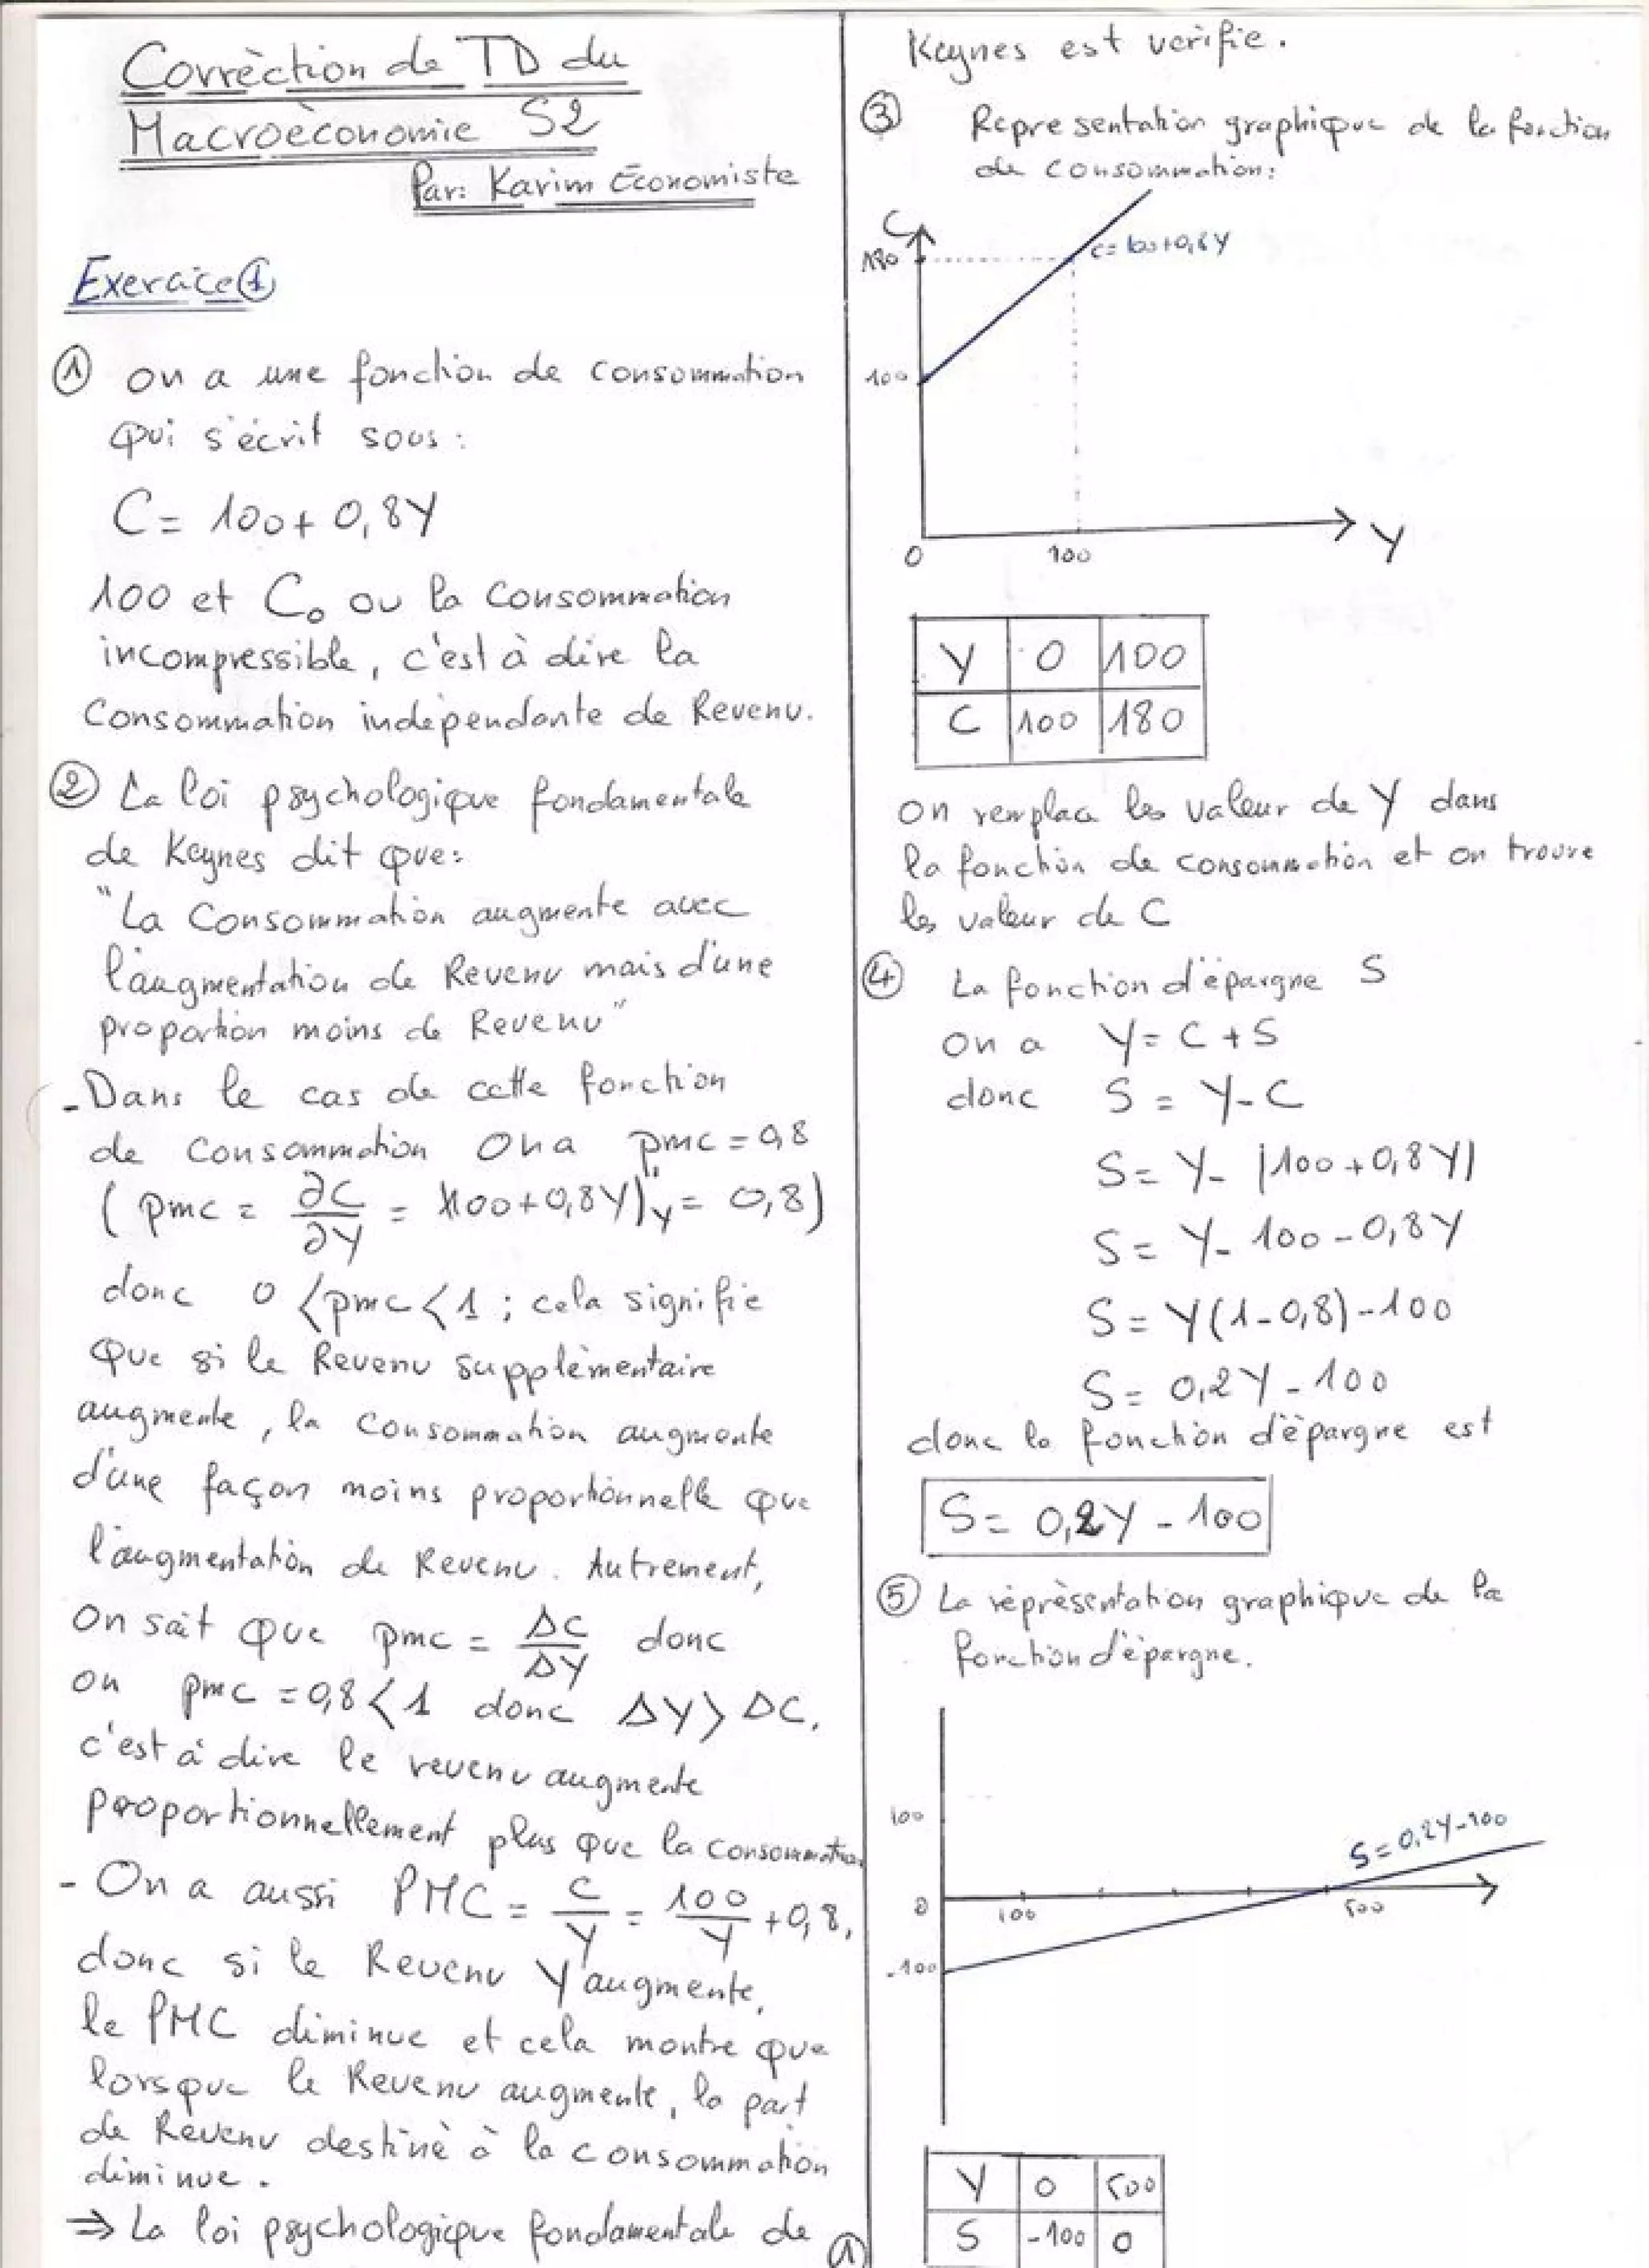 Corrèction de TD du
Macroèconomie S2
Par: Karim Economiste
Exercice ①
① on a une fonction de consommation
qui s'écrit sous :
C = 100 + 0,8Y
100 et C₀ ou la consommation
incompressible, c'est à dire la
Consommation indépendante de Revenu.
② La loi psychologique fondamentale
de Keynes dit que:
"La Consommation augmente avec
l'augmentation de Revenu mais d'une
proportion moins de Revenu"
- Dans le cas de cette fonction
de consommation on a pmc = 0,8
( pmc = ∂C/∂Y = (100+0,8Y)'Y = 0,8)
donc 0 < pmc < 1 ; cela signifie
que si le Revenu supplèmentaire
augmente, la consommation augmente
d'une façon moins proportionnelle que
l'augmentation de Revenu. Autrement,
on sait que pmc = ΔC/ΔY donc
on pmc = 0,8 < 1 donc ΔY > ΔC,
c'est à dire le revenu augmente
proportionnellement plus que la consommation
- On a aussi PMC = C/Y = 100/Y + 0,8,
donc si le Revenu Y augmente,
le PMC diminue et cela montre que
lorsque le Revenu augmente, la part
de Revenu destinè à la consommation
diminue.
⇒ La loi psychologique fondamentale de
①
Keynes est vérifie.
③ Representation graphique de la fonction
de consommation:
C
180
C = 100+0,8Y
100
0 100 Y
Y 0 100
C 100 180
on remplace les valeur de Y dans
la fonction de consommation et on trouve
les valeur de C
④ La fonction d'épargne S
on a Y = C + S
donc S = Y - C
S = Y - |100 + 0,8Y|
S = Y - 100 - 0,8Y
S = Y(1 - 0,8) - 100
S = 0,2Y - 100
donc la fonction d'èpargne est
S = 0,2Y - 100
⑤ La rèprèsentation graphique de la
fonction d'èpargne.
100
S = 0,2Y-100
0 100 500
-100
Y 0 500
S -100 0